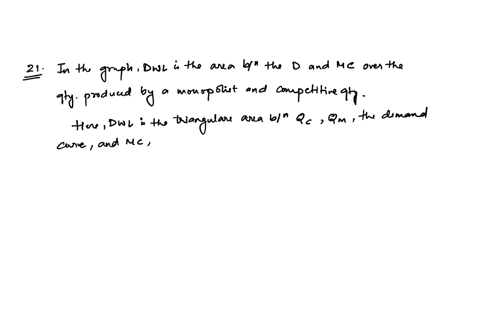 21. In the graph, DWL is the area b/n the D and MC over the
qty. produced by a monopolist and competitive qty.
Here, DWL is the triangulare area b/n Qc, Qm, the demand
curve, and MC,